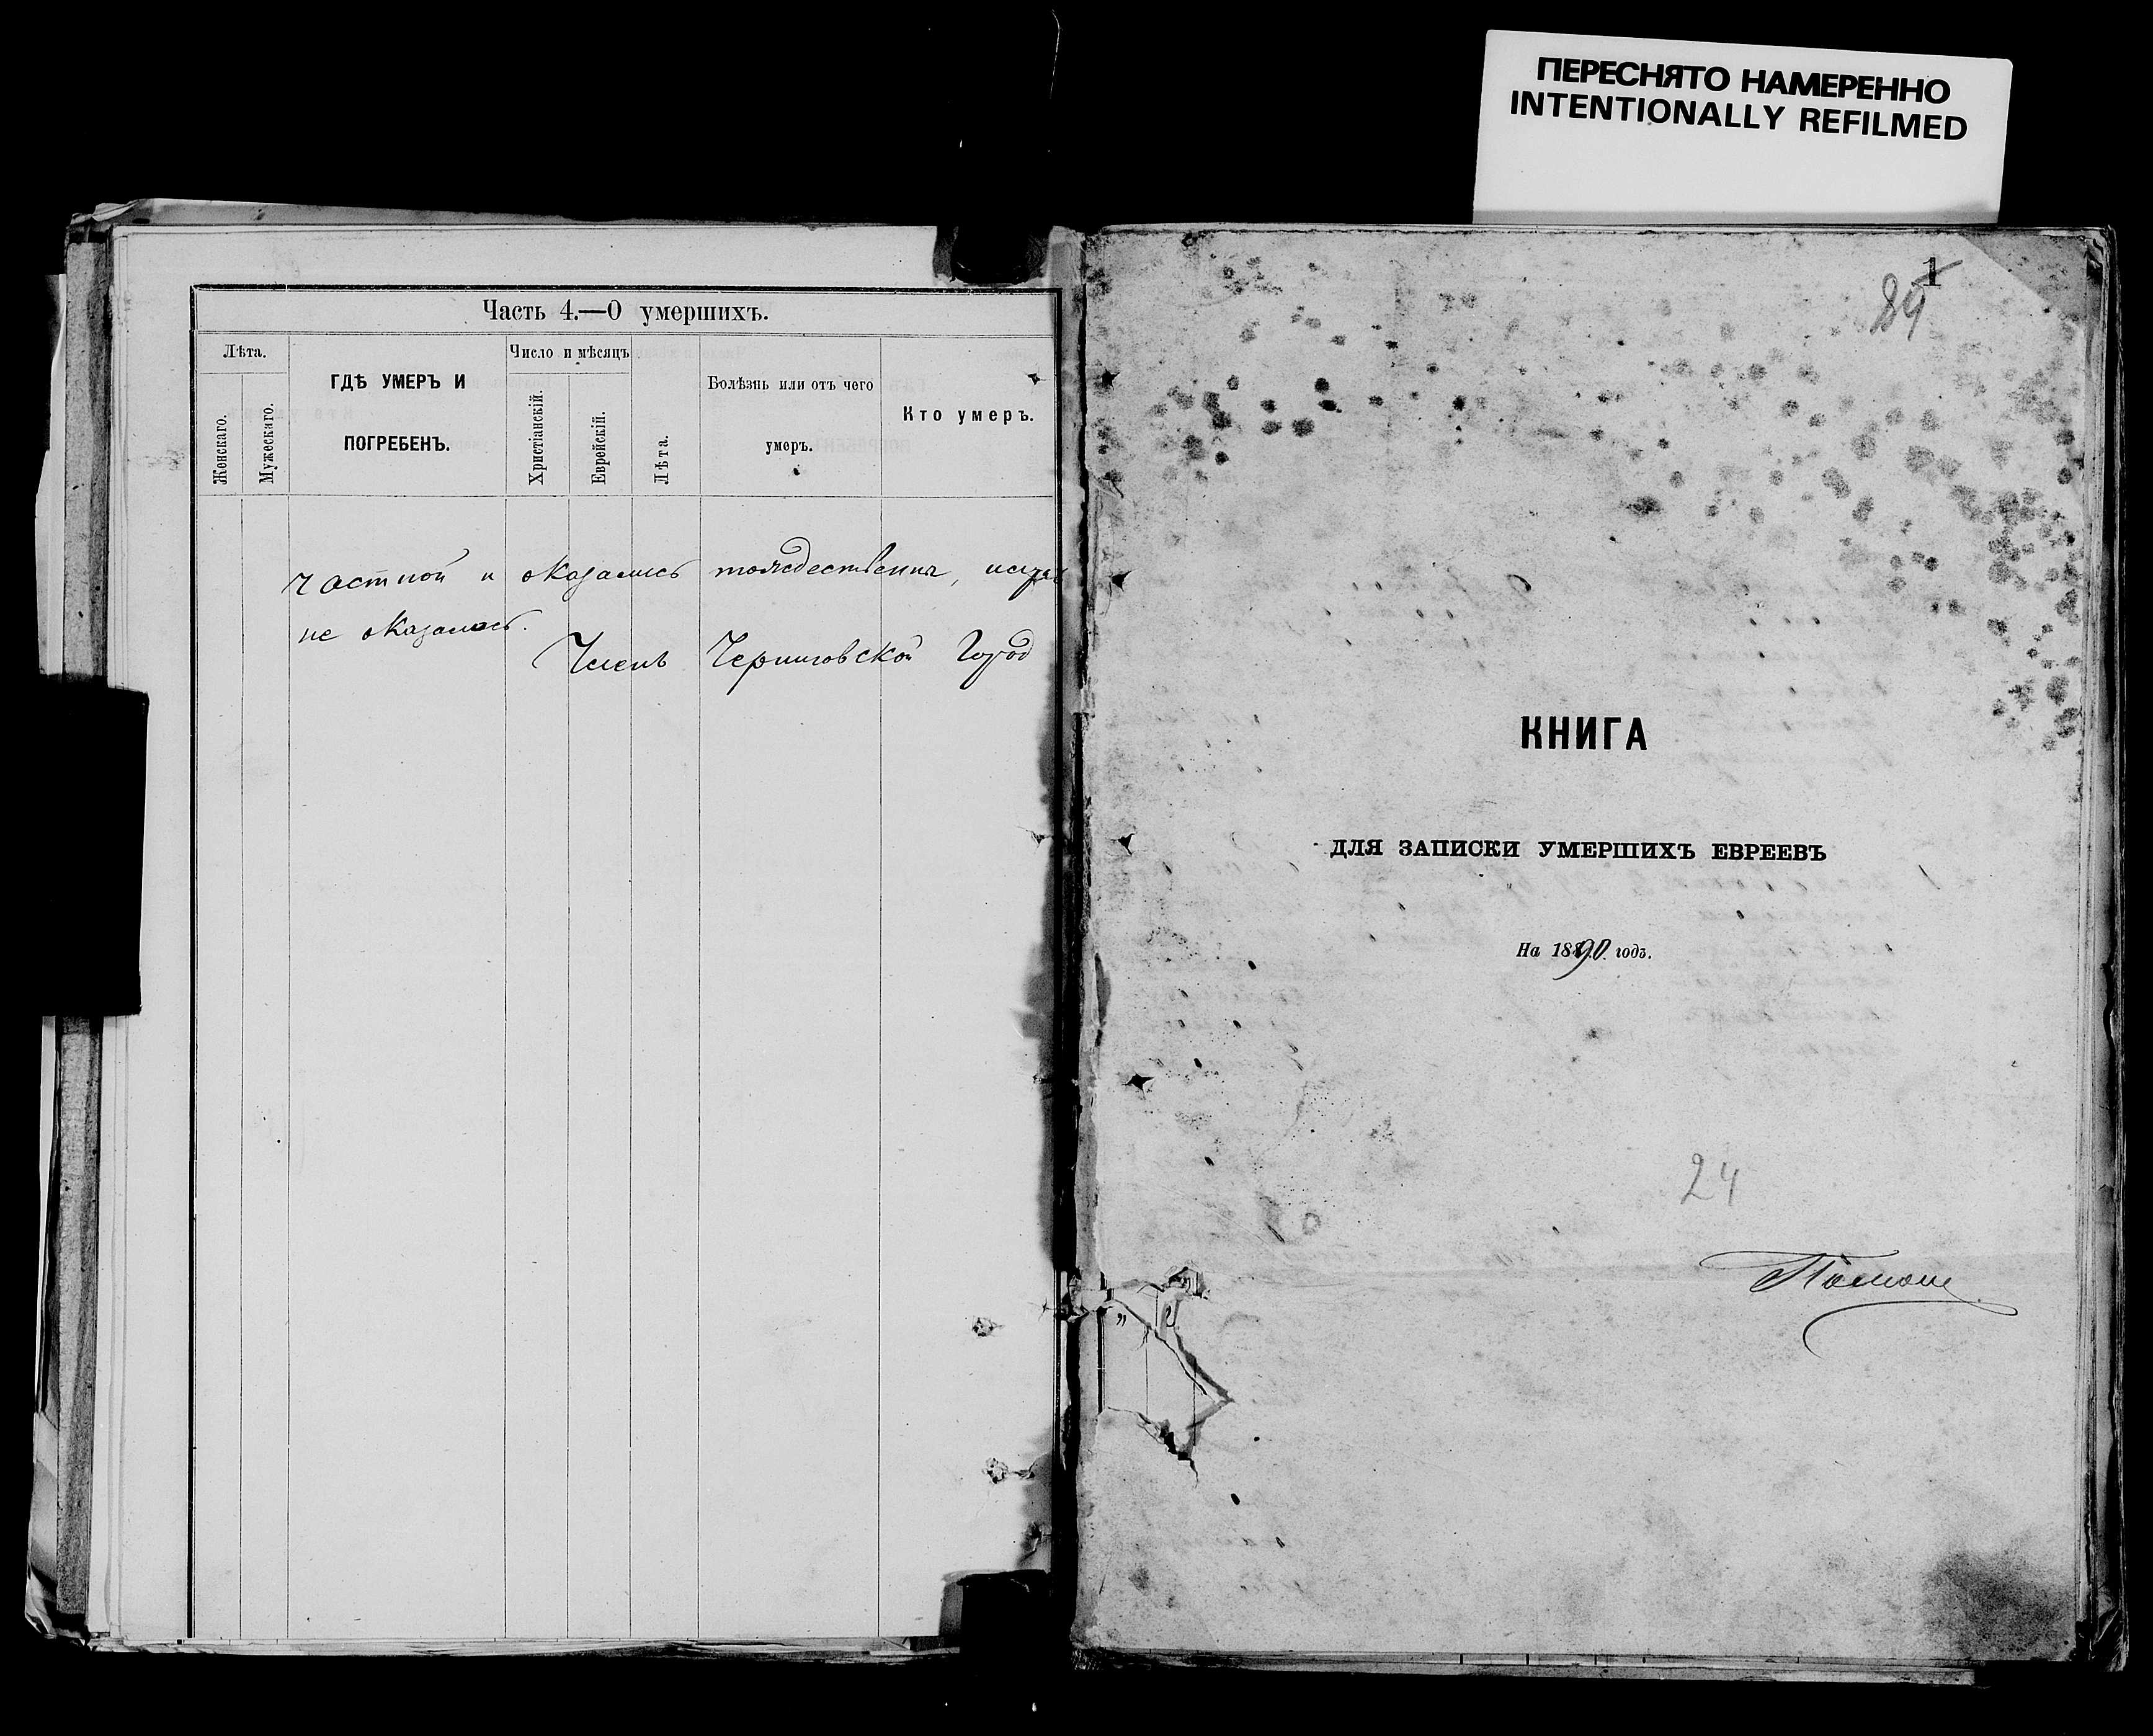 ПЕРЕСНЯТО НАМЕРЕННО
INTENTIONALLY REFILMED
Часть 4.—О умершихъ.
Лѣта.
Женскаго.
Мужескаго.
ГДѢ УМЕРЪ И
ПОГРЕБЕНЪ.
Число и мѣсяцъ
Христіанскій.
Еврейскій.
Лѣта.
Болѣзнь или отъ чего
умеръ.
Кто умеръ.
частной и оказались тождественны,
не оказалось.
Членъ Черниговской Город
1
КНИГА
ДЛЯ ЗАПИСКИ УМЕРШИХЪ ЕВРЕЕВЪ
На 1890 годъ.
24